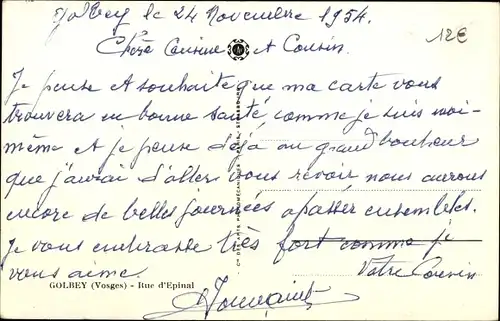 Golbey le 24 Novembre 1954.
Chère Cousine et Cousin.
12€
Je pense et souhaite que ma carte vous
trouvera en bonne santé comme je suis moi-
même et je pense déjà au grand bonheur
que j'aurai d'aller vous revoir nous aurons
encore de belles journées a passer ensembles.
Je vous embrasse très fort comme je
vous aime.
Votre Cousin
GOLBEY (Vosges) - Rue d'Epinal